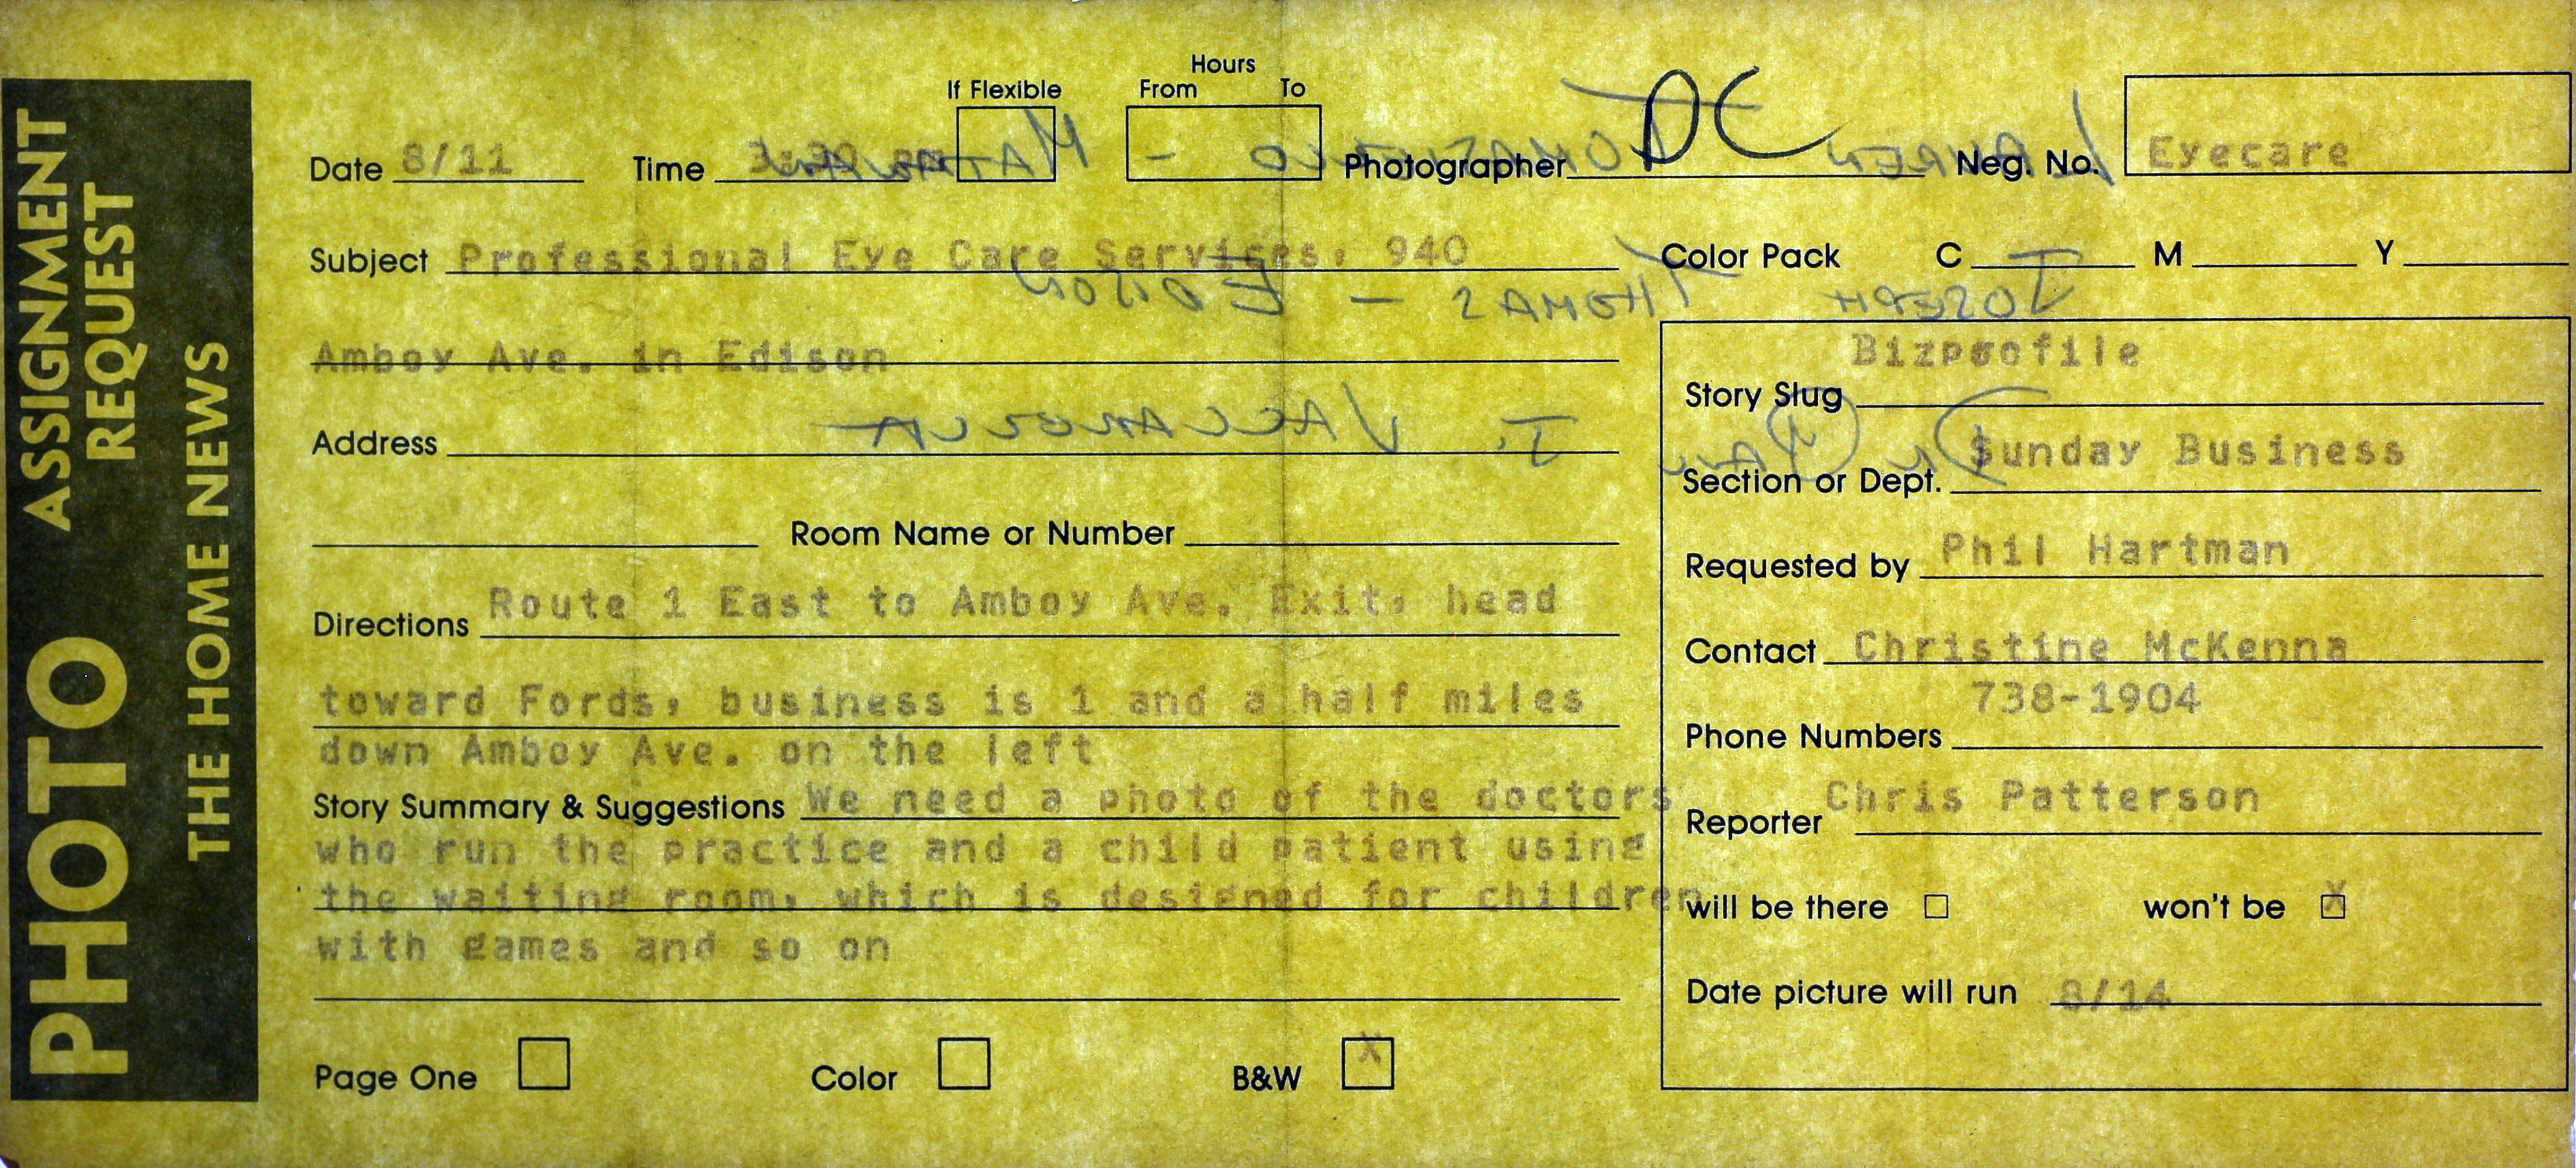 PHOTO ASSIGNMENT REQUEST
THE HOME NEWS
If Flexible
Hours
From To
Date 8/11 Time 3:30 pm Photographer DC Neg. No. Eyecare
Subject Professional Eye Care Services, 940
Amboy Ave. in Edison
Address
Room Name or Number
Directions Route 1 East to Amboy Ave. Exit, head
toward Fords, business is 1 and a half miles
down Amboy Ave. on the left
Story Summary & Suggestions We need a photo of the doctors
who run the practice and a child patient using
the waiting room, which is designed for children
with games and so on
Page One Color B&W X
Color Pack C M Y
Story Slug Bizprofile
Section or Dept. Sunday Business
Requested by Phil Hartman
Contact Christine McKenna
Phone Numbers 738-1904
Reporter Chris Patterson
will be there won't be X
Date picture will run 8/14
Lauren - Matawan
Joseph Thomas - Edison
J. Vaccarella